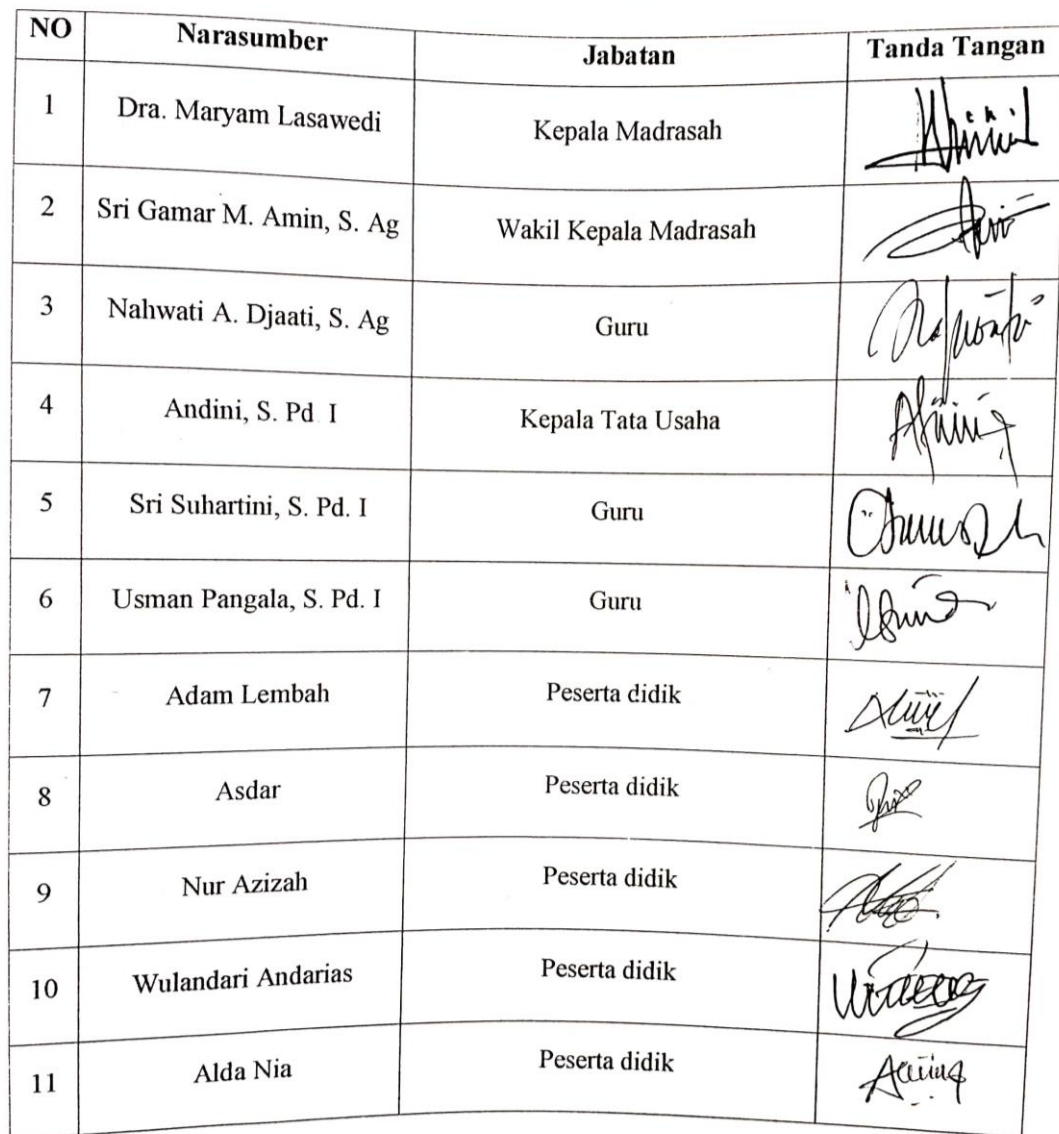 NO Narasumber Jabatan Tanda Tangan
1 Dra. Maryam Lasawedi Kepala Madrasah
2 Sri Gamar M. Amin, S. Ag Wakil Kepala Madrasah
3 Nahwati A. Djaati, S. Ag Guru
4 Andini, S. Pd I Kepala Tata Usaha
5 Sri Suhartini, S. Pd. I Guru
6 Usman Pangala, S. Pd. I Guru
7 Adam Lembah Peserta didik
8 Asdar Peserta didik
9 Nur Azizah Peserta didik
10 Wulandari Andarias Peserta didik
11 Alda Nia Peserta didik